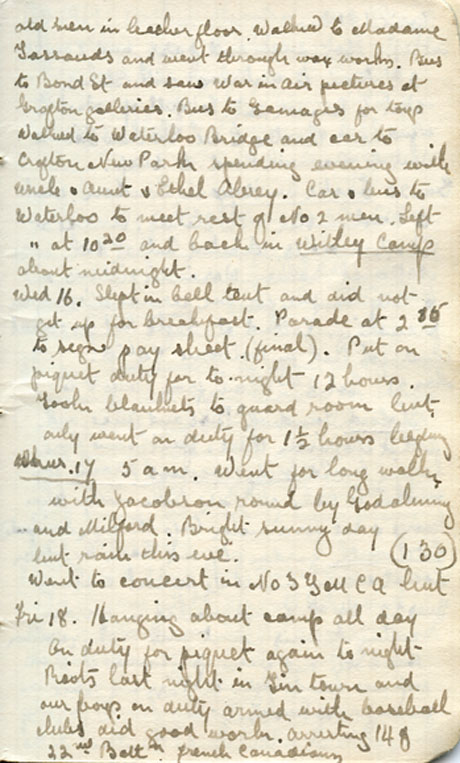 old men in leather floor. Walked to Madame
Tassauds and went through wax works. Bus
to Bond St and saw War in Air pictures at
Grafton galleries. Bus to Gamages for toys
Walked to Waterloo Bridge and car to
Crofton New Park spending evening with
Uncle & Aunt & Ethel Abrey. Car & bus to
Waterloo to meet rest of No 2 men. Left
" at 10 20 and back in Witley Camp
about midnight.
Wed 16. Slept in bell tent and did not
get up for breakfast. Parade at 2
to sign pay sheet (final). Put on
piquet duty for to-night 12 hours.
Took blankets to guard room but
only went on duty for 1½ hours
Thurs. 17 5 a m. Went for long walk
with Jacobson round by Godalming
and Milford. Bright sunny day
but rain this eve. (130)
Went to concert in No 3 Y M C A hut
Fri 18. Hanging about camp all day
On duty for piquet again to night
Riots last night in Tin town and
our boys on duty armed with baseball
clubs did good work. arresting 14 of
22nd Battn French Canadians